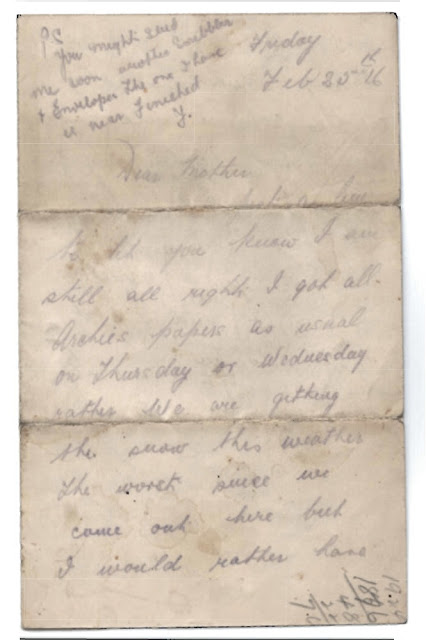 PS
You might send
me soon another Scribbler
& Envelopes The one I have
is near Finished
Y.
Friday
Feb 25th 16
Dear Mother
Just a line
to let you know I am
still all right I got all
Archies papers as usual
on Thursday or Wednesday
rather We are getting
the snow this weather
the worst since we
come out here but
I would rather have